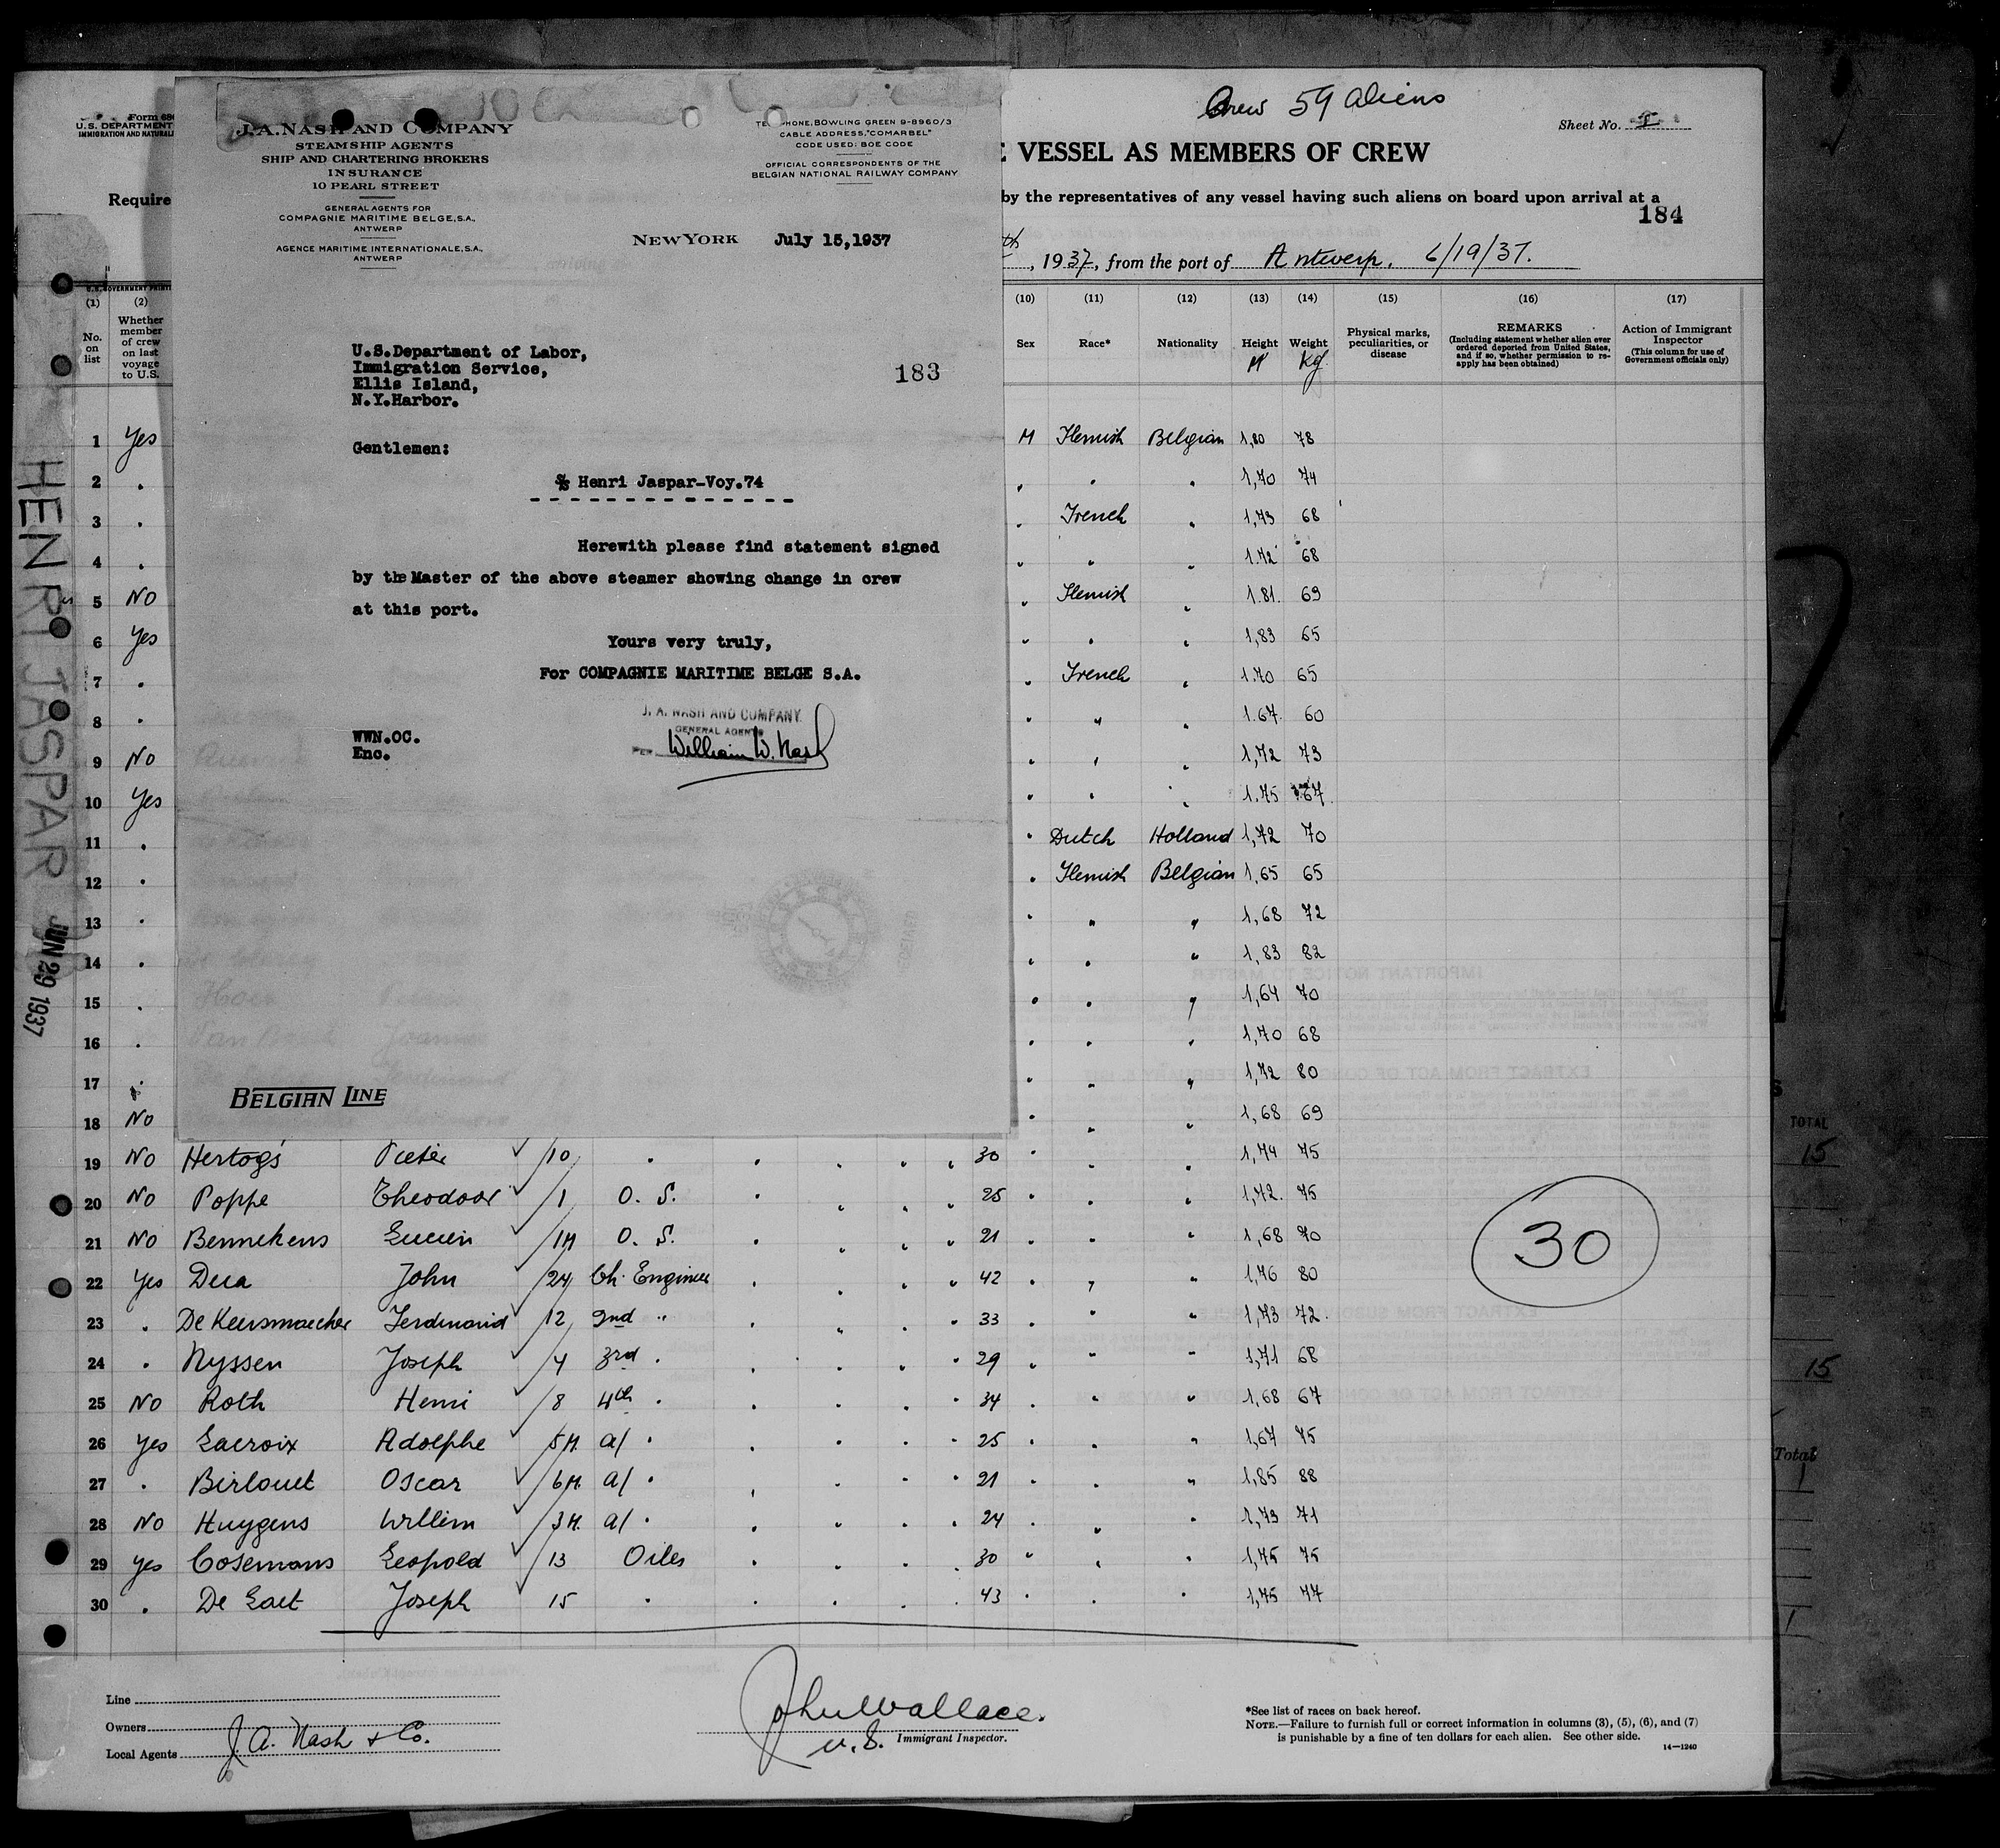 Crew 59 aliens
Sheet No. 1
Form 68
U.S. DEPARTMENT
IMMIGRATION AND NATURALI
J.A. NASH AND COMPANY
STEAMSHIP AGENTS
SHIP AND CHARTERING BROKERS
INSURANCE
10 PEARL STREET
GENERAL AGENTS FOR
COMPAGNIE MARITIME BELGE, S.A.,
ANTWERP
AGENCE MARITIME INTERNATIONALE, S.A.,
ANTWERP
TELEPHONE, BOWLING GREEN 9-8960/3
CABLE ADDRESS, "COMARBEL"
CODE USED: BOE CODE
OFFICIAL CORRESPONDENTS OF THE
BELGIAN NATIONAL RAILWAY COMPANY
NEW YORK July 15,1937
U.S.Department of Labor,
Immigration Service,
Ellis Island,
N.Y.Harbor.
183
Gentlemen:
S/S Henri Jaspar-Voy.74
Herewith please find statement signed
by the Master of the above steamer showing change in crew
at this port.
Yours very truly,
For COMPAGNIE MARITIME BELGE S.A.
J. A. NASH AND COMPANY
GENERAL AGENTS
PER William W. Nash
WWN.OC.
Enc.
BELGIAN LINE
VESSEL AS MEMBERS OF CREW
Require
by the representatives of any vessel having such aliens on board upon arrival at a
184
th, 1937, from the port of Antwerp, 6/19/37.
HENRI JASPAR JUN 29 1937
(1) (2) (10) (11) (12) (13) (14) (15) (16) (17)
No. on list
Whether member of crew on last voyage to U.S.
Sex
Race*
Nationality
Height M
Weight Kg
Physical marks, peculiarities, or disease
REMARKS
(Including statement whether alien ever ordered deported from United States, and if so, whether permission to re-apply has been obtained)
Action of Immigrant Inspector
(This column for use of Government officials only)
1 Yes M Flemish Belgian 1,80 78
2 " " " " 1,70 74
3 " " French " 1,73 68
4 " " " " 1.72 68
5 No " Flemish " 1.81. 69
6 Yes " " " 1,83 65
7 " " French " 1.70 65
8 " " " " 1.67. 60
9 No " " " 1,72 73
10 Yes " " " 1.75 67
11 " " Dutch Holland 1,72 70
12 " " Flemish Belgian 1,65 65
13 " " " " 1,68 72
14 " " " " 1,83 82
15 " " " " 1,64 70
16 " " " " 1,70 68
17 " " " " 1,72 80
18 No " " " 1,68 69
19 No Hertogs Pieter /10 " " " " " 30 " " " 1,74 75
20 No Poppe Theodoor /1 O. S. " " " " 25 " " " 1,72. 75
21 No Bennekens Lucien /1M O. S. " " " " 21 " " " 1,68 70
22 Yes Dua John /24 Ch. Engineer " " " " 42 " " " 1,76 80
23 " De Keersmaecker Ferdinand /12 2nd " " " " " 33 " " " 1,73 72.
24 " Nyssen Joseph /4 3rd " " " " " 29 " " " 1,71 68
25 No Roth Henri /8 4th " " " " " 34 " " " 1,68 67
26 Yes Lacroix Adolphe /5M. a/ " " " " " 25 " " " 1,67 75
27 " Birlouet Oscar /6M. a/ " " " " " 21 " " " 1,85 88
28 No Huygens Willem /3M. a/ " " " " " 24 " " " 1,73 71
29 Yes Cosemans Leopold /13 Oiler " " " " 30 " " " 1,75 75
30 " De Laet Joseph 15 " " " " " 43 " " " 1,75 77
30
TOTAL
15
15
Total
1
Line
Owners
Local Agents J. A. Nash & Co.
John Wallace.
U.S. Immigrant Inspector.
*See list of races on back hereof.
NOTE.—Failure to furnish full or correct information in columns (3), (5), (6), and (7)
is punishable by a fine of ten dollars for each alien. See other side.
14—1240